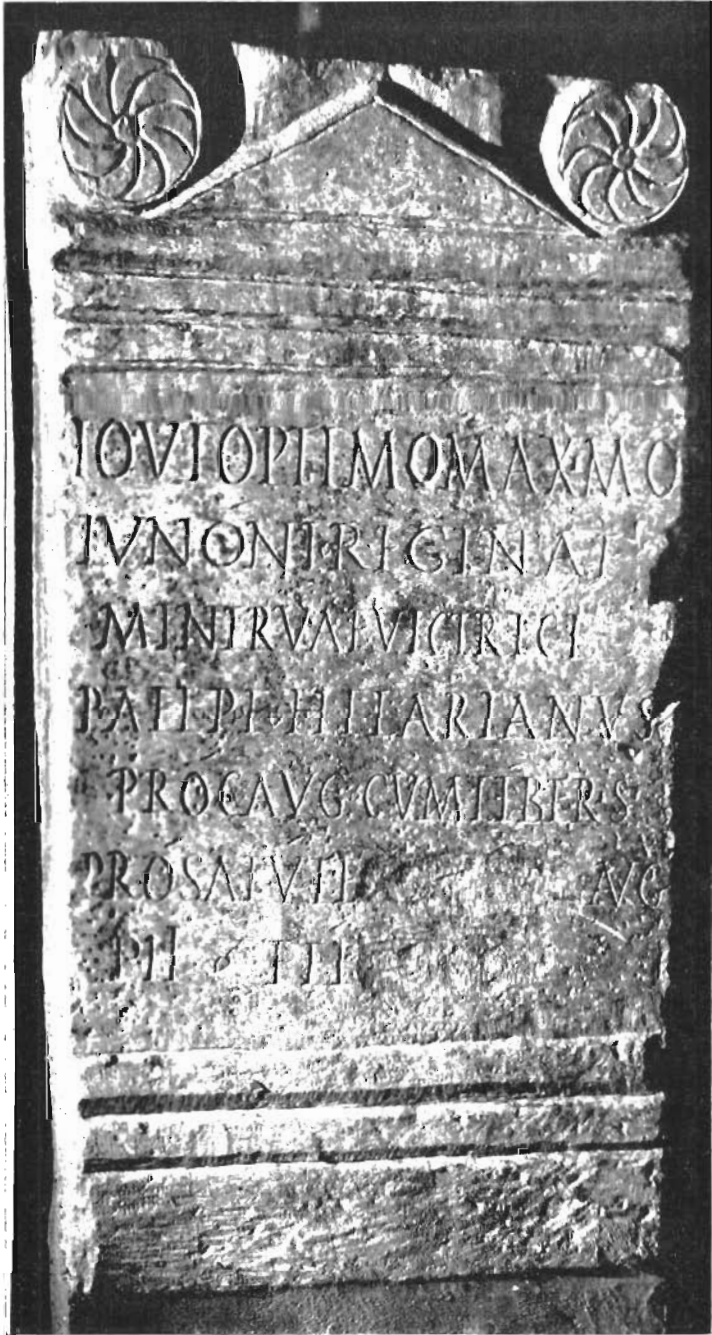 IOVI OPTIMO MAXIMO
IVNONI REGINAE
MINERVAE VICTRICI
P AEL P F HILARIANVS
PROC AVG CVM LIBERIS
PRO SALVTE AVG
PII FEL